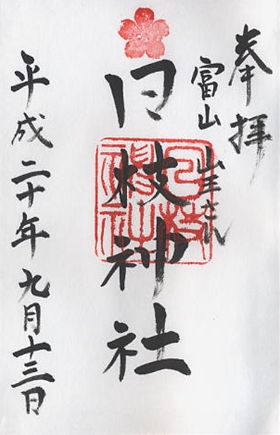 奉拝
富山 山王さん
日枝神社
平成二十年九月十三日